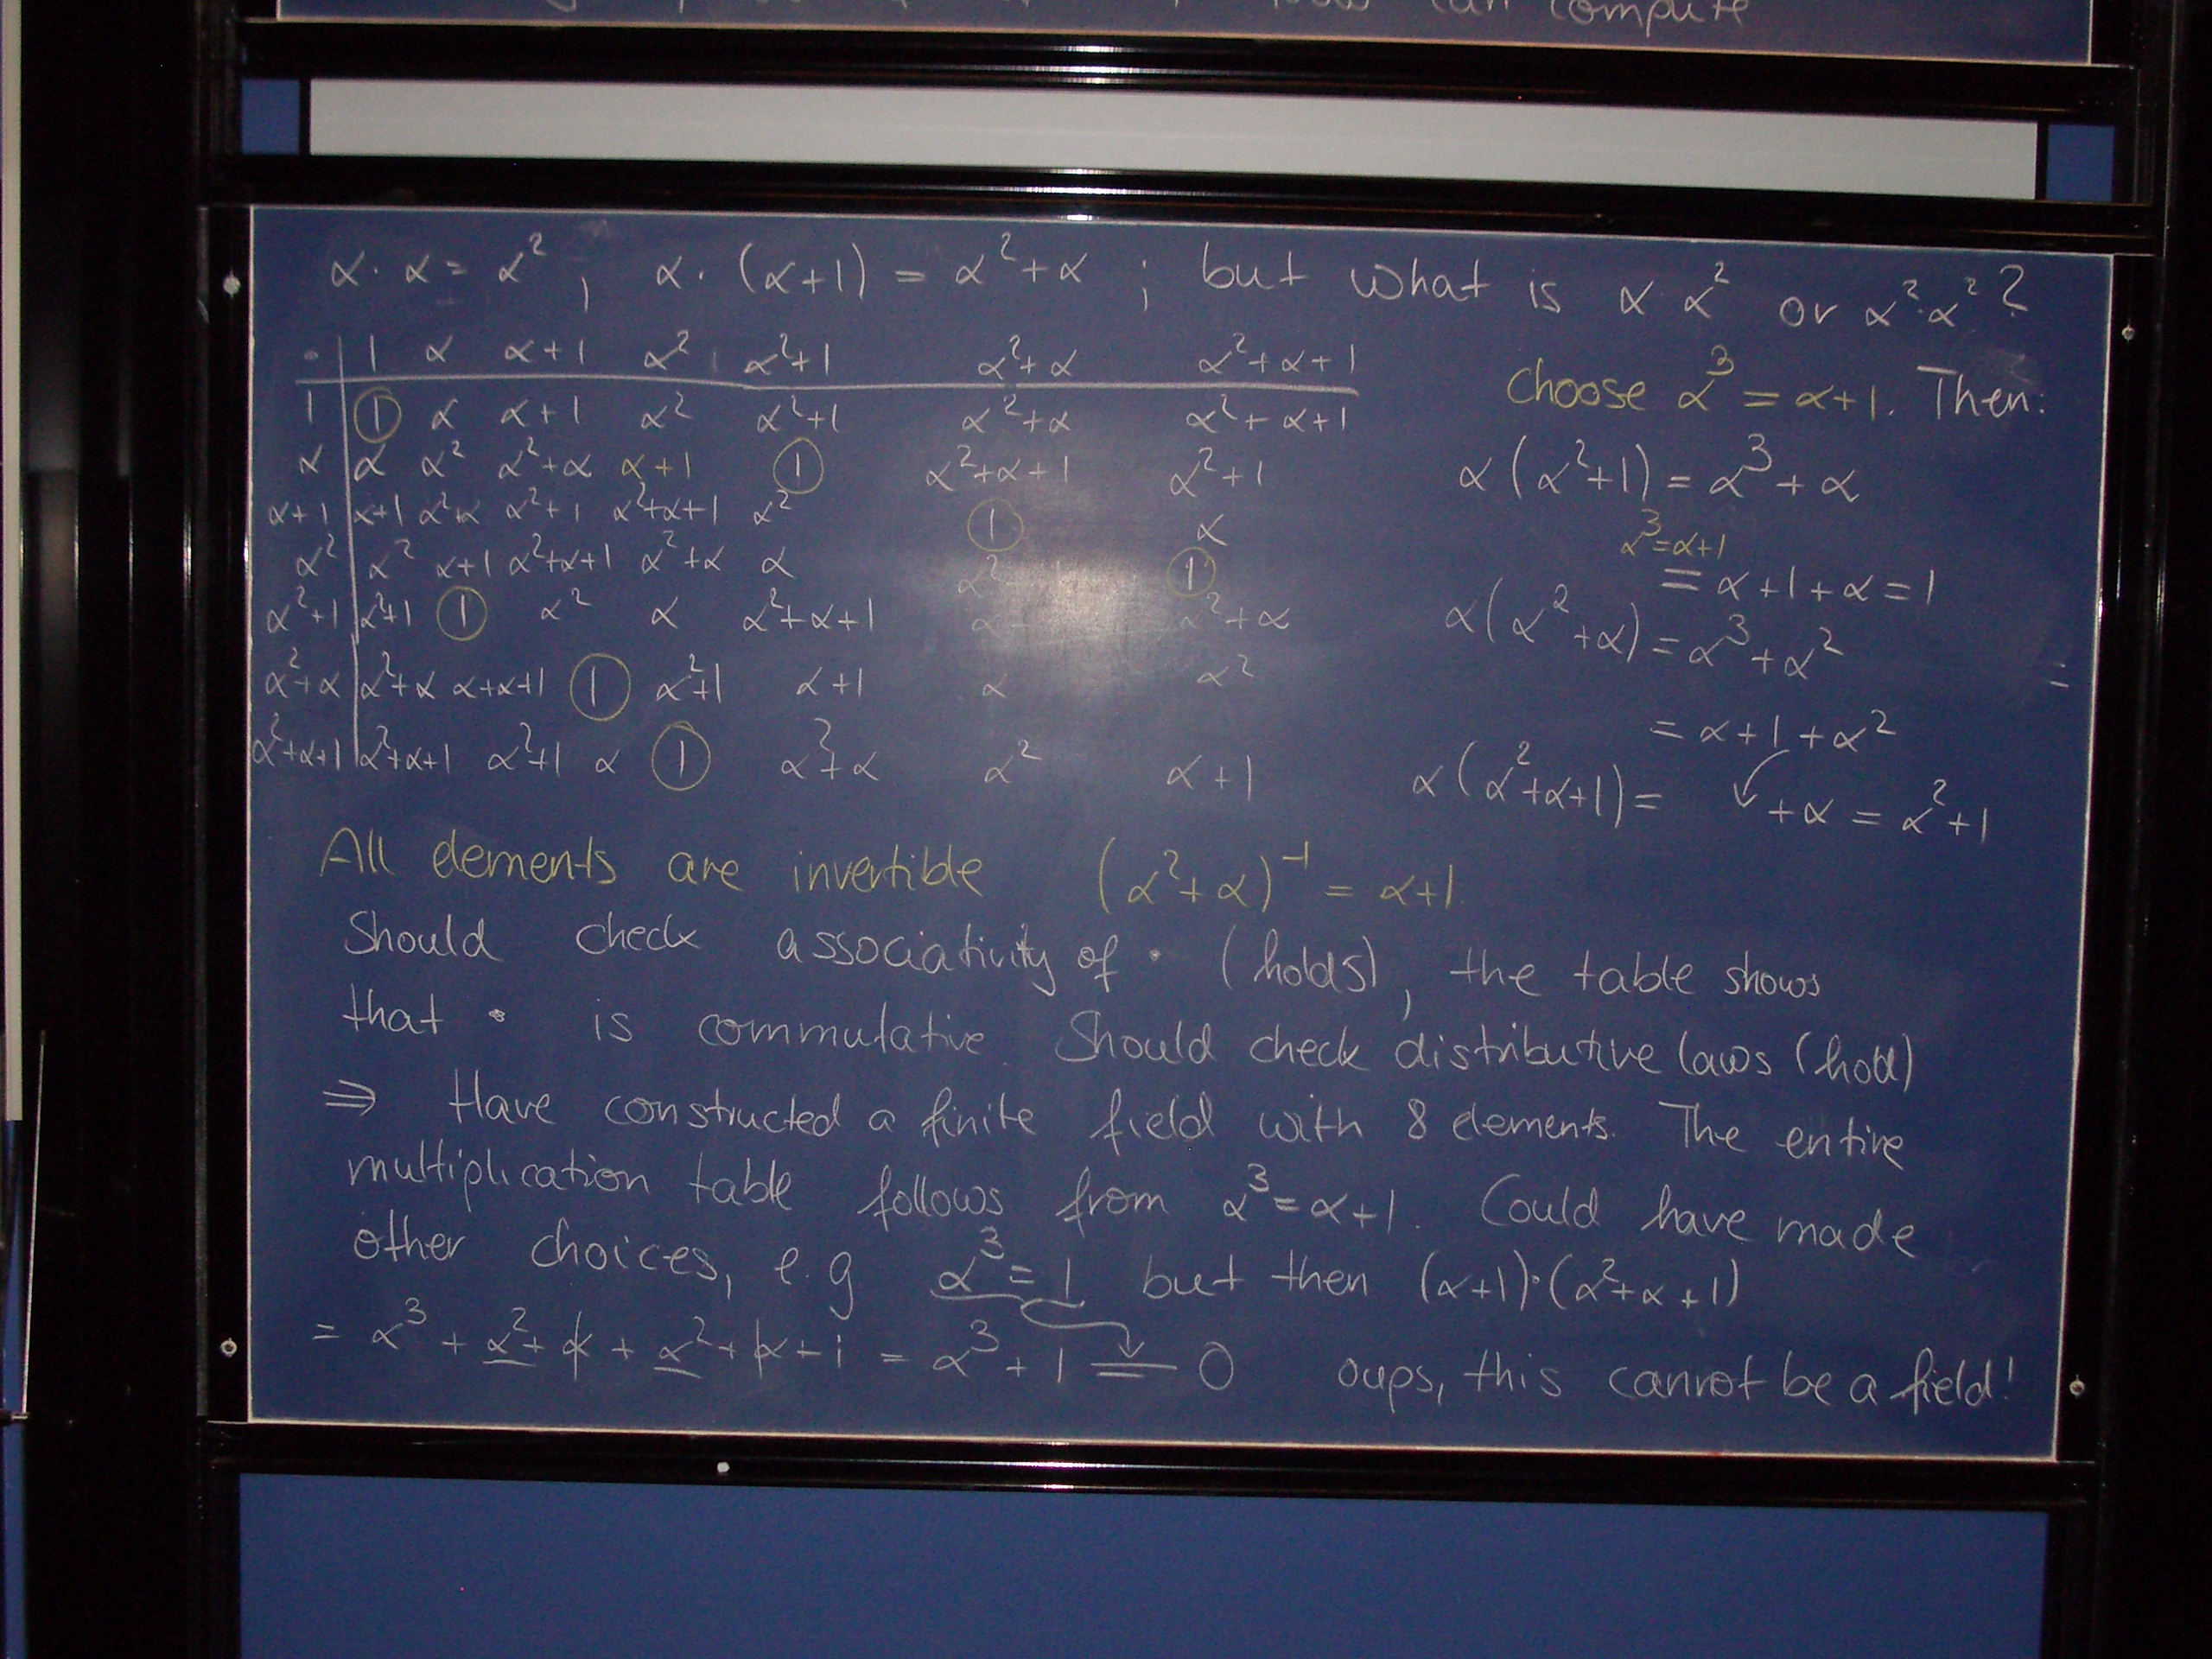 can compute
α · α = α², α · (α+1) = α²+α ; but what is α α² or α²·α² ?
· | 1 α α+1 α² α²+1 α²+α α²+α+1
1 | 1 α α+1 α² α²+1 α²+α α²+α+1
α | α α² α²+α α+1 1 α²+α+1 α²+1
α+1 | α+1 α²+α α²+1 α²+α+1 α² 1 α
α² | α² α+1 α²+α+1 α²+α α α²+1 1
α²+1 | α²+1 1 α² α α²+α+1 α²+α
α²+α | α²+α α+α+1 1 α²+1 α+1 α α²
α²+α+1 | α²+α+1 α²+1 α 1 α²+α α² α+1
choose α³ = α+1. Then:
α(α²+1) = α³ + α
α³=α+1
= α+1+α = 1
α(α²+α) = α³+α²
=
= α+1+α²
α(α²+α+1) = +α = α²+1
All elements are invertible (α²+α)⁻¹ = α+1
Should check associativity of · (holds), the table shows
that · is commutative. Should check distributive laws (hold)
⇒ Have constructed a finite field with 8 elements. The entire
multiplication table follows from α³=α+1. Could have made
other choices, e.g α³=1 but then (α+1)·(α²+α+1)
= α³ + α² + α + α² + α + 1 = α³+1 = 0 oups, this cannot be a field!